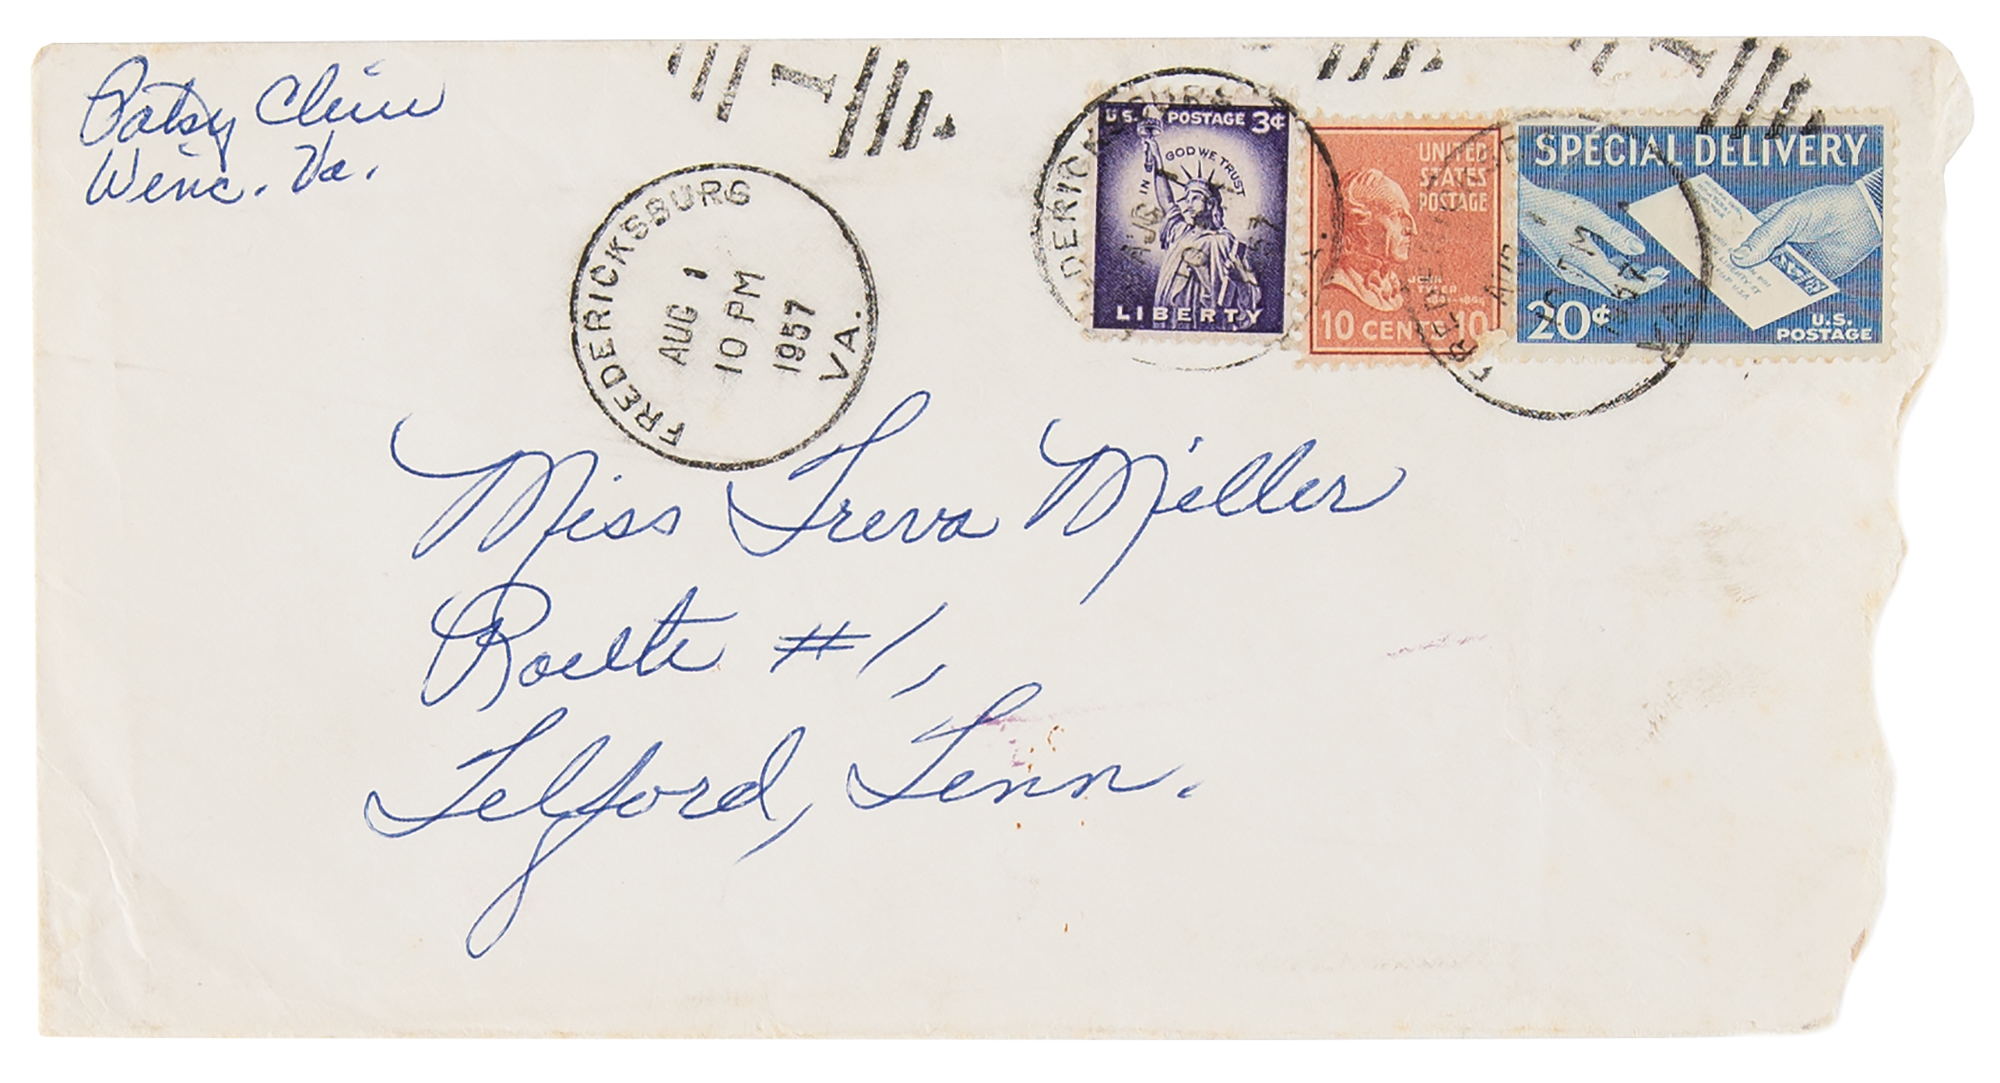 Patsy Cline
Winc. Va.
FREDERICKSBURG VA.
AUG 1
10 PM
1957
U.S. POSTAGE 3¢
IN GOD WE TRUST
LIBERTY
UNITED
STATES
POSTAGE
JOHN
TYLER
10 CENTS 10
SPECIAL DELIVERY
20¢
U.S.
POSTAGE
Miss Treva Miller
Route #1,
Telford, Tenn.